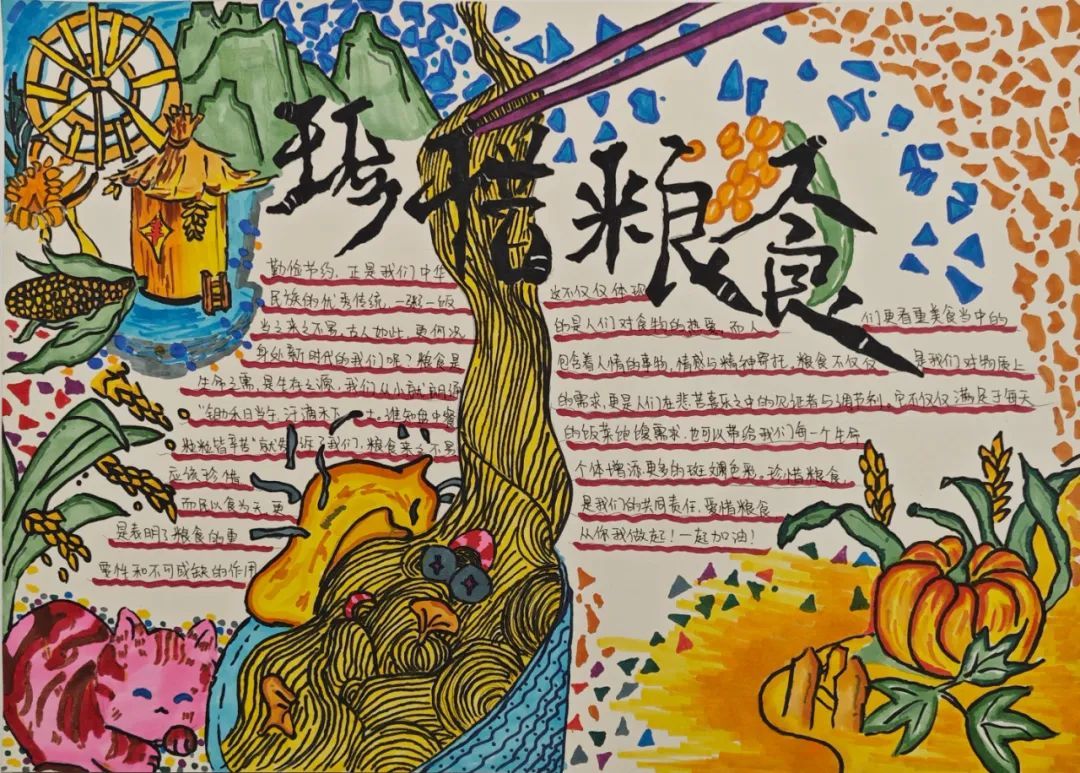 珍惜粮食
勤俭节约,正是我们中华
民族的优秀传统,一粥一饭
当之来之不易,古人如此,更何况
身处新时代的我们呢?粮食是
生命之需,是生存之源,我们从小就朗诵
“锄禾日当午,汗滴禾下土。谁知盘中餐
粒粒皆辛苦”就告诉了我们,粮食来之不易
应该珍惜
而民以食为天更
是表明了粮食的重
要性和不可或缺的作用
这不仅仅体现
的是人们对食物的热爱,而人
们更看重美食当中的
包含着人情的事物,情感与精神寄托,粮食不仅仅是我们对物质上
的需求,更是人们在悲苦喜乐之中的见证者与调节剂。它不仅仅满足于每天
的饭菜饱腹需求,也可以带给我们每一个生命
个体增添更多的斑斓色彩。珍惜粮食,
是我们的共同责任,爱惜粮食
从你我做起!一起加油!